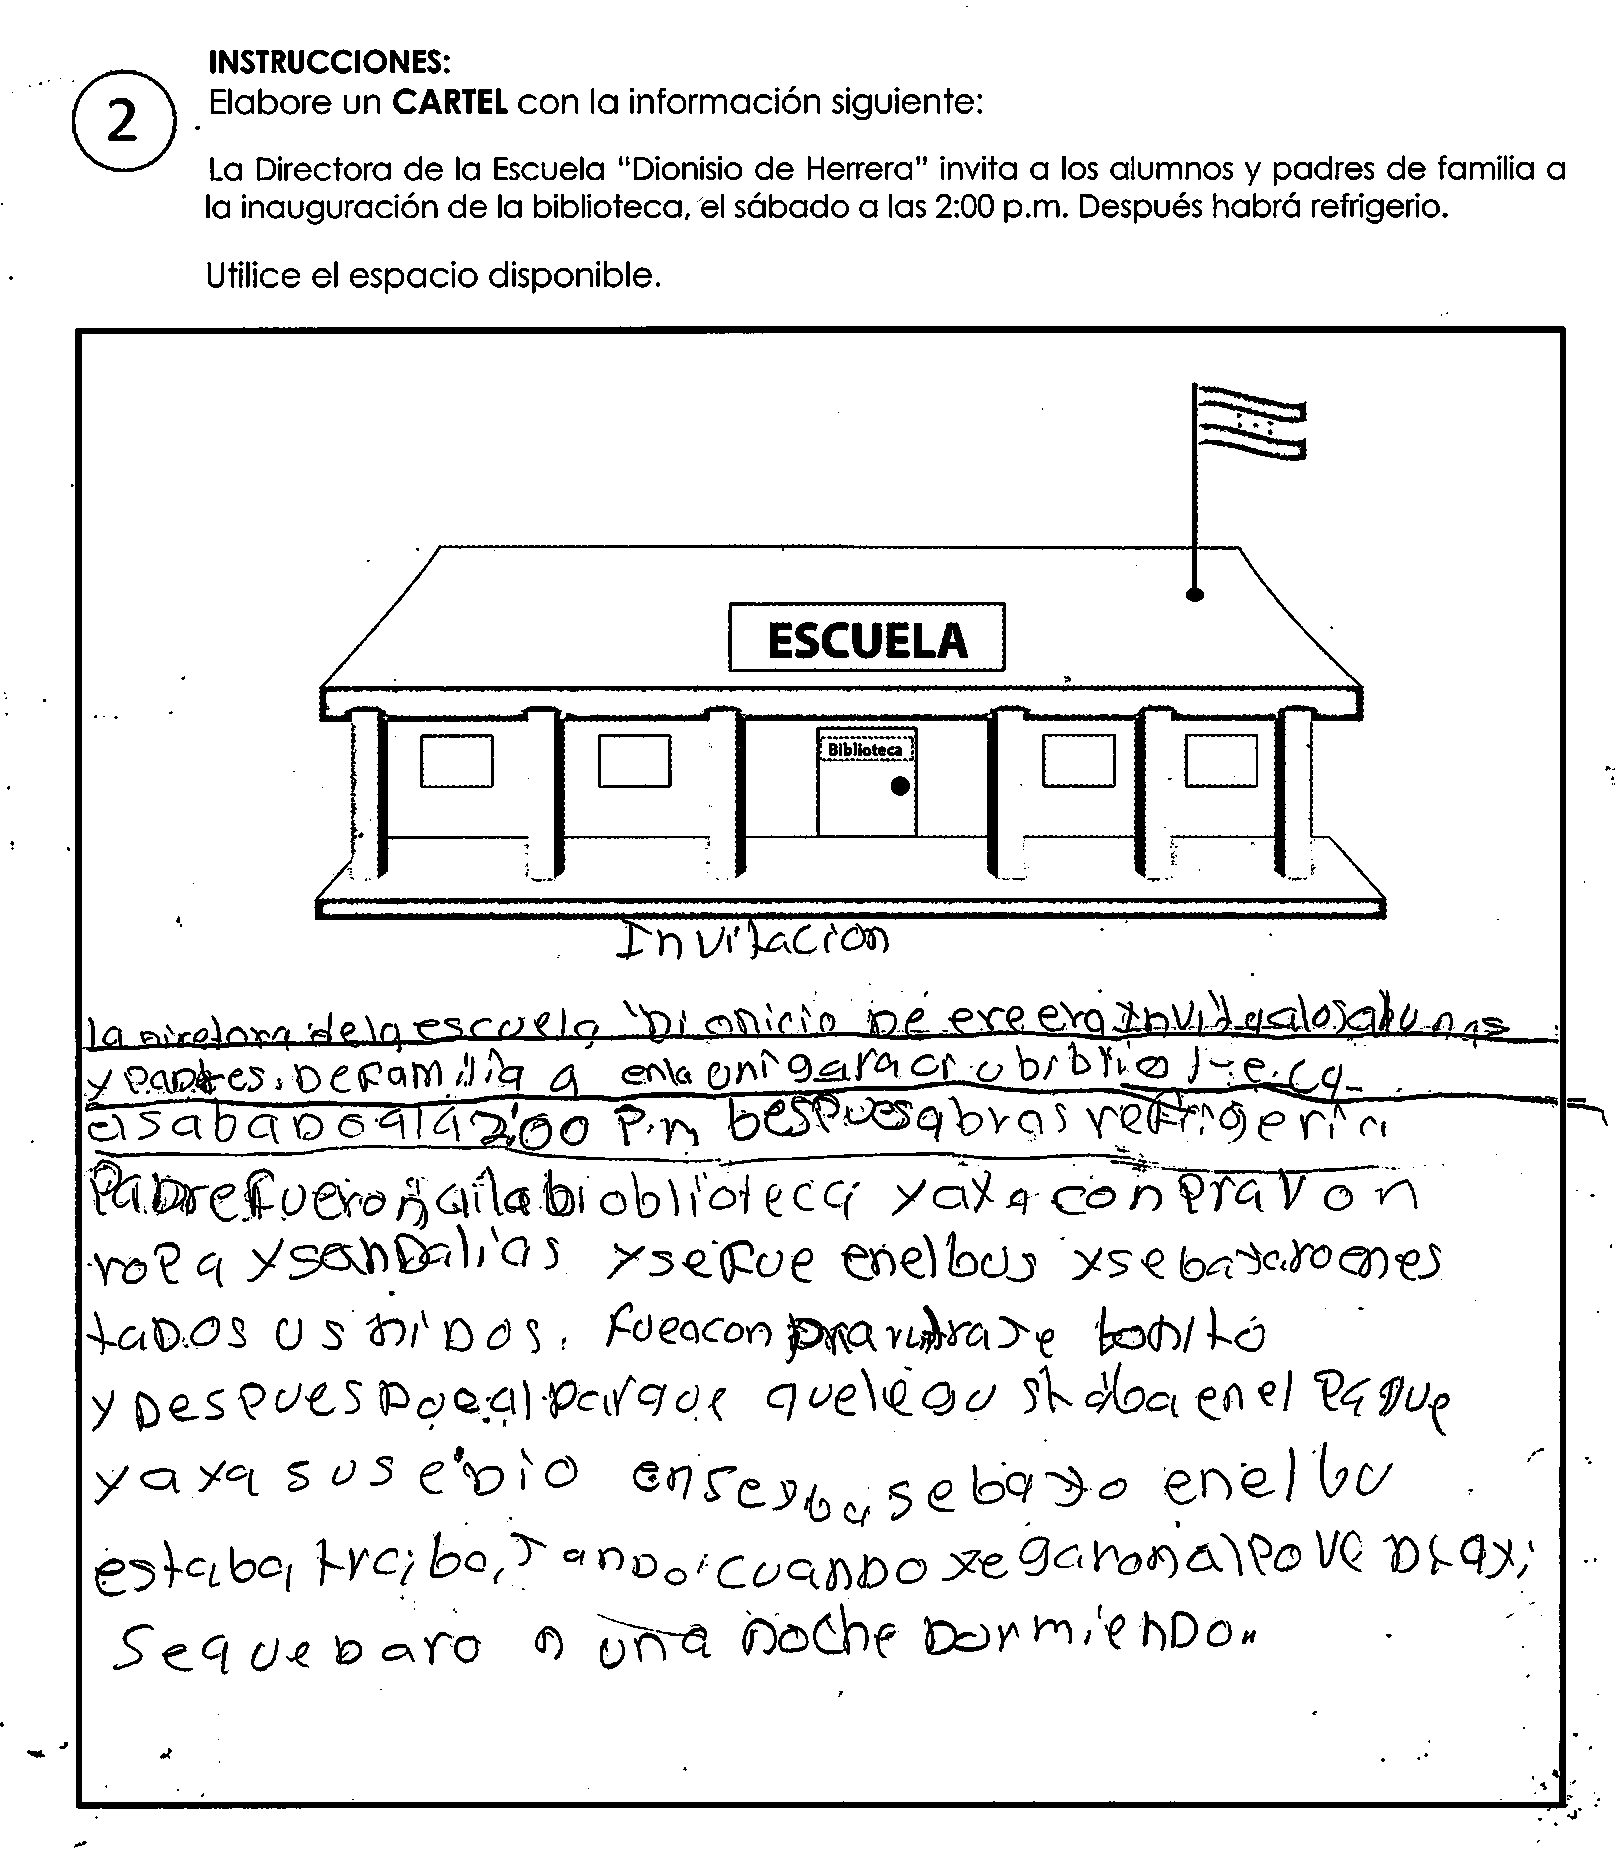 INSTRUCCIONES:
2
Elabore un CARTEL con la información siguiente:
La Directora de la Escuela "Dionisio de Herrera" invita a los alumnos y padres de familia a
la inauguración de la biblioteca, el sábado a las 2:00 p.m. Después habrá refrigerio.
Utilice el espacio disponible.
ESCUELA
Biblioteca
Invitacion
la diretora dela escuela "Dionicio De ereera Invita
y padres. De familia a enla
el sabado 2:00 P.m Despues abras refrigerio
Padre fueron aila bioblioteca yaya conpraron
ropa ysandalias y se fue enel bus y se bayaron enes
tados usnidos. fue a conprar traje bonito
y Despues al parque que en el Paque
yaya susedio se bayo enel bu
estaba trabajando cuando
Sequebaro n una noche Dormiendo.